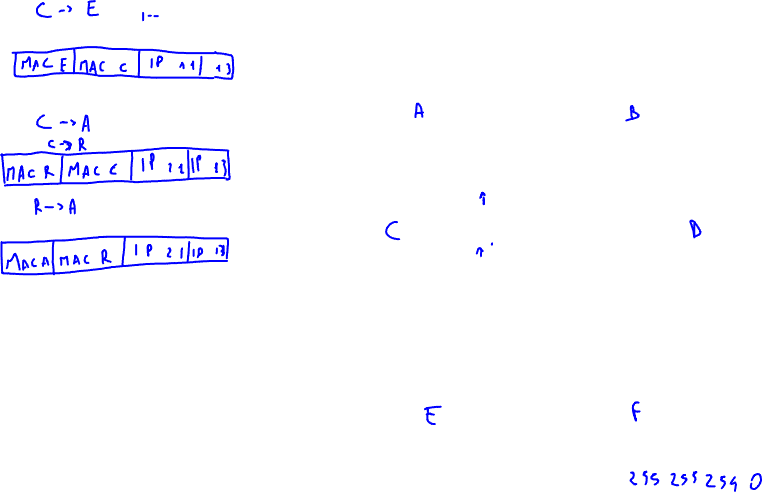 C -> E 1--
MAC E MAC C IP 11 13
C -> A
C -> R
MAC R MAC C IP 21 IP 13
R -> A
MAC A MAC R IP 21 IP 13
A B
C D
E F
255 255 254 0